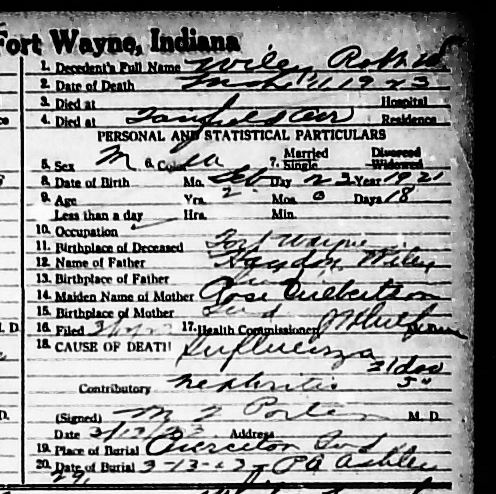 Fort Wayne, Indiana
1. Decedent's Full Name Wiley
2. Date of Death Mch. 11. 1923
3. Died at Hospital
4. Died at Fairfield Ave Residence
PERSONAL AND STATISTICAL PARTICULARS
5. Sex M 6. Color 7. Married Single Divorced Widowed
8. Date of Birth Mo. Feb Day 23 Year 1921
9. Age Yrs. 2 Mos. 0 Days 18
Less than a day Hrs. Min.
10. Occupation
11. Birthplace of Deceased Fort Wayne
12. Name of Father Wiley
13. Birthplace of Father
14. Maiden Name of Mother Rose Culbertson
15. Birthplace of Mother Ind
16. Filed 17. Health Commissioner
18. CAUSE OF DEATH Influenza
Contributory nephritis
(Signed) M. D.
Date 3/12/23 Address
19. Place of Burial Pierceton Ind
20. Date of Burial 3-13-